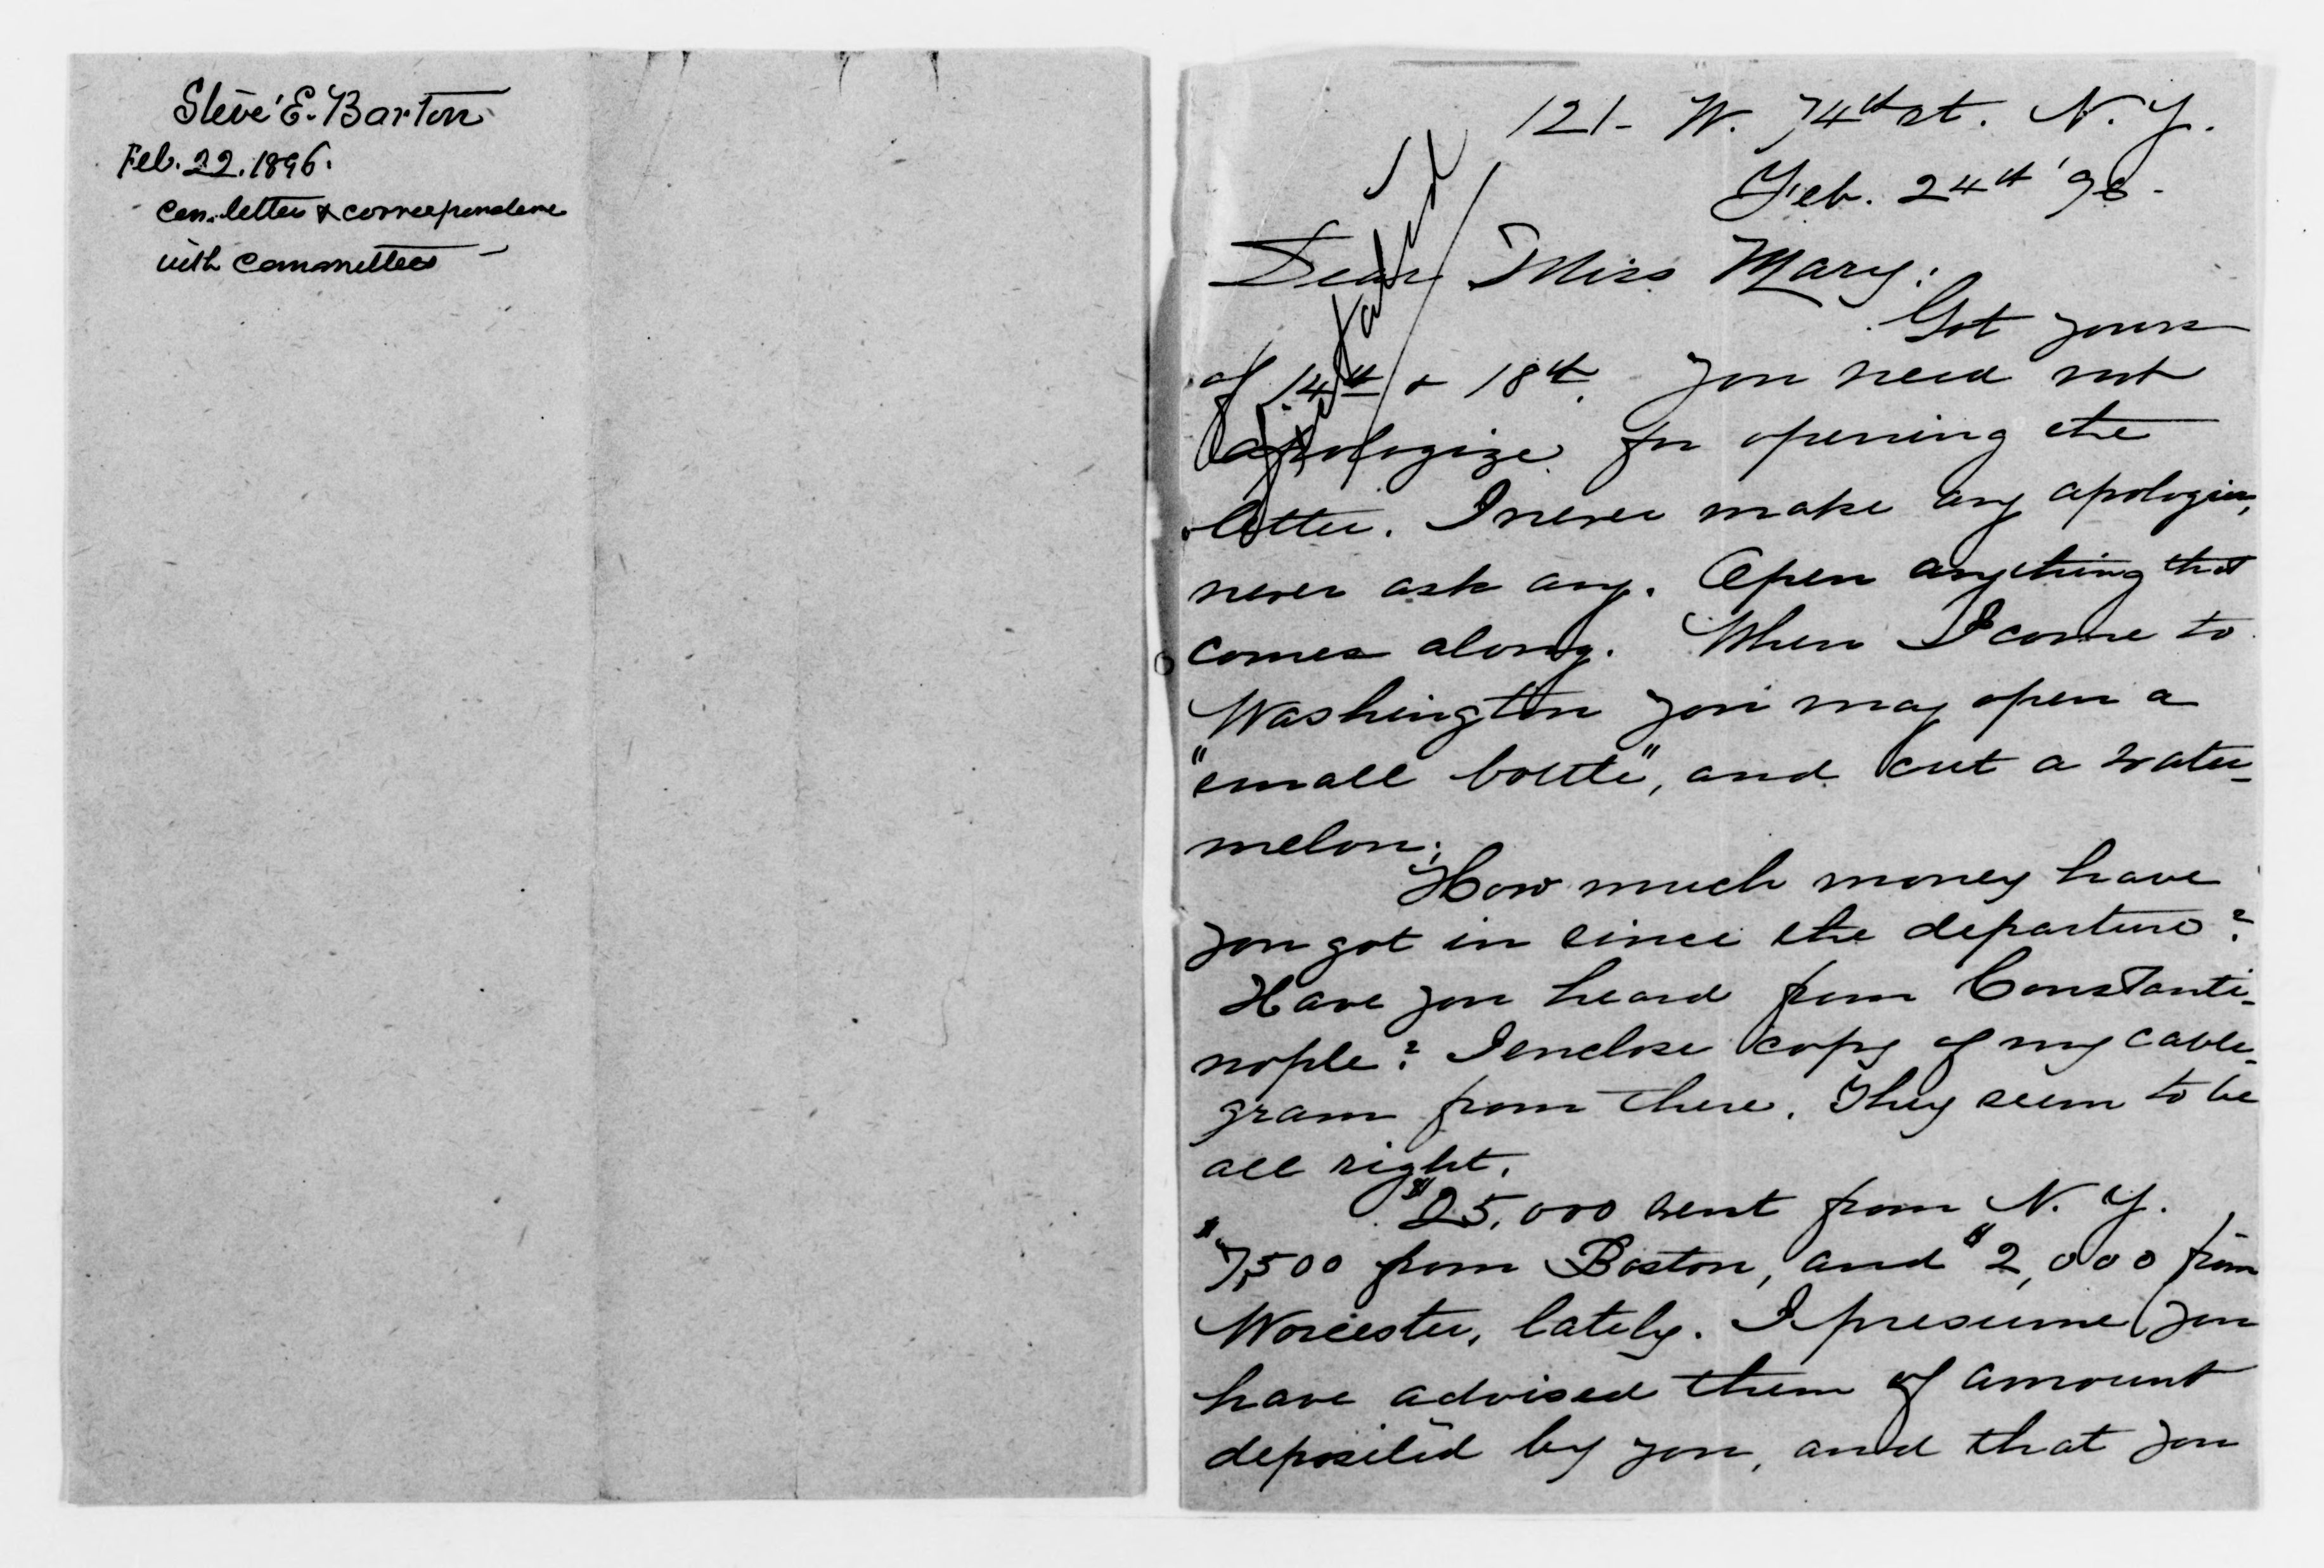 Steve E. Barton
Feb. 22. 1896.
Con. letter & correspondence
with Committees
121- W. 74th st. N. Y.
Feb. 24th '96-
Dear Miss Mary:
Got yours
of 14th & 18th. You need not
apologize for opening the
letter. I never make any apologies,
never ask any. Open anything that
comes along. When I come to
Washington you may open a
"small bottle", and cut a water-
melon.
How much money have
you got in since the departure?
Have you heard from Constanti-
nople? I enclose copy of my cable-
gram from there. They seem to be
all right.
$25,000 sent from N. Y.
$7,500 from Boston, and $2,000 from
Worcester, lately. I presume you
have advised them of amount
deposited by you, and that you